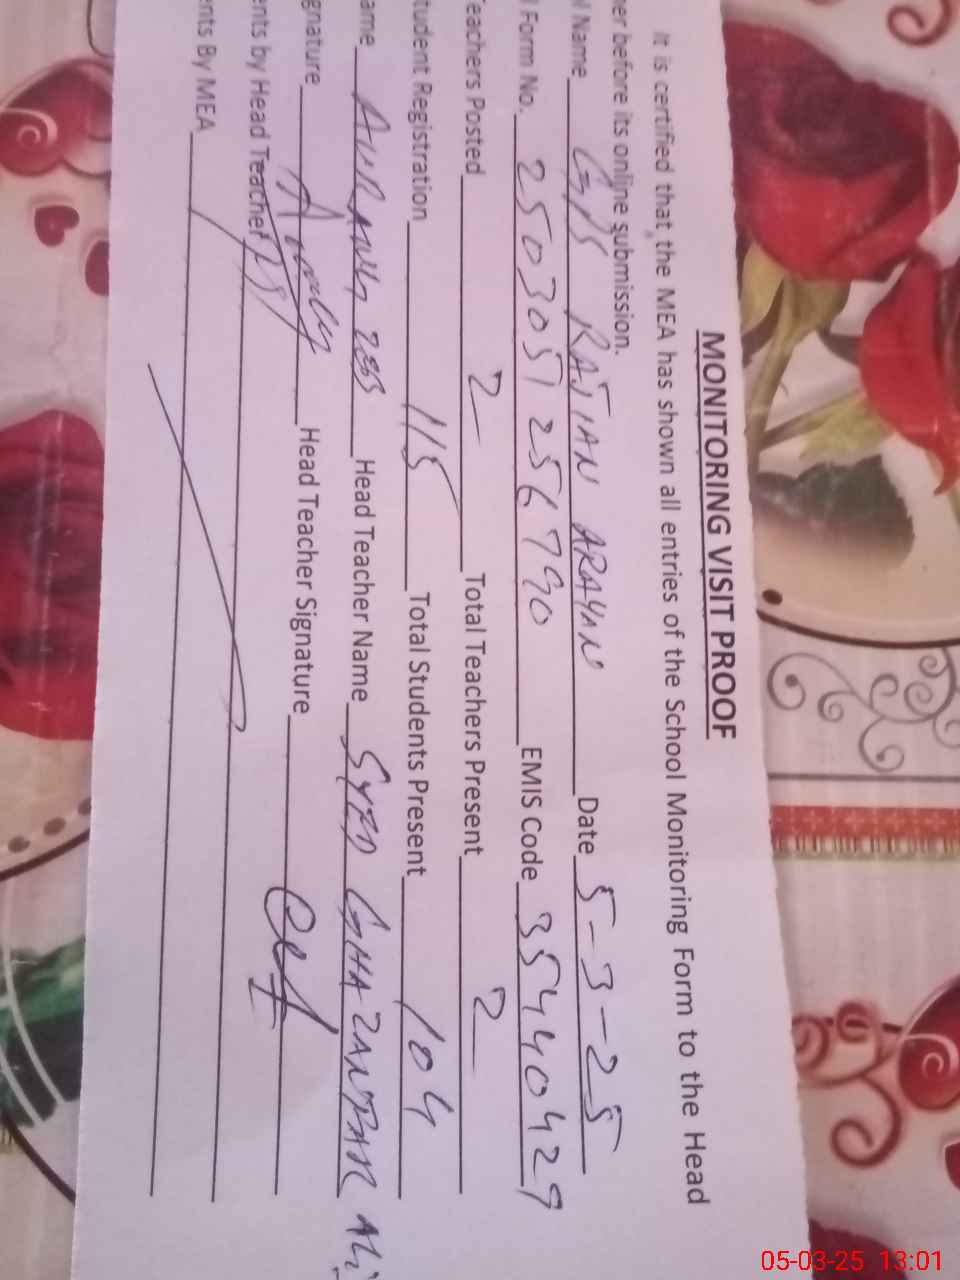 MONITORING VISIT PROOF
It is certified that the MEA has shown all entries of the School Monitoring Form to the Head
her before its online submission.
l Name GPS RAJIAN ARAYAN Date 5-3-25
l Form No. 2503051256790 EMIS Code 35440429
Teachers Posted 2 Total Teachers Present 2
tudent Registration 115 Total Students Present 104
ame AURANG ZEB Head Teacher Name SYED GHAZANFAR ALI
gnature Head Teacher Signature
ents by Head Teacher
ents By MEA
05-03-25 13:01